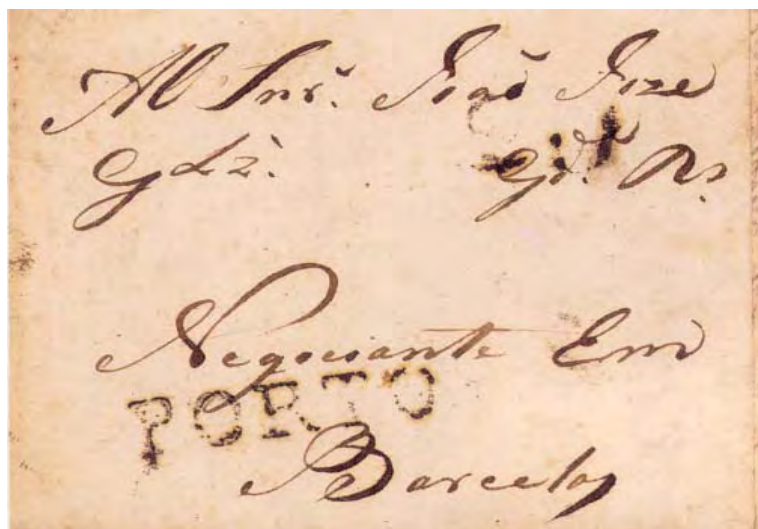 Al Snr. João Joze
Gdz. Gd. Rs.
Negociante Em
PORTO
Barcelos